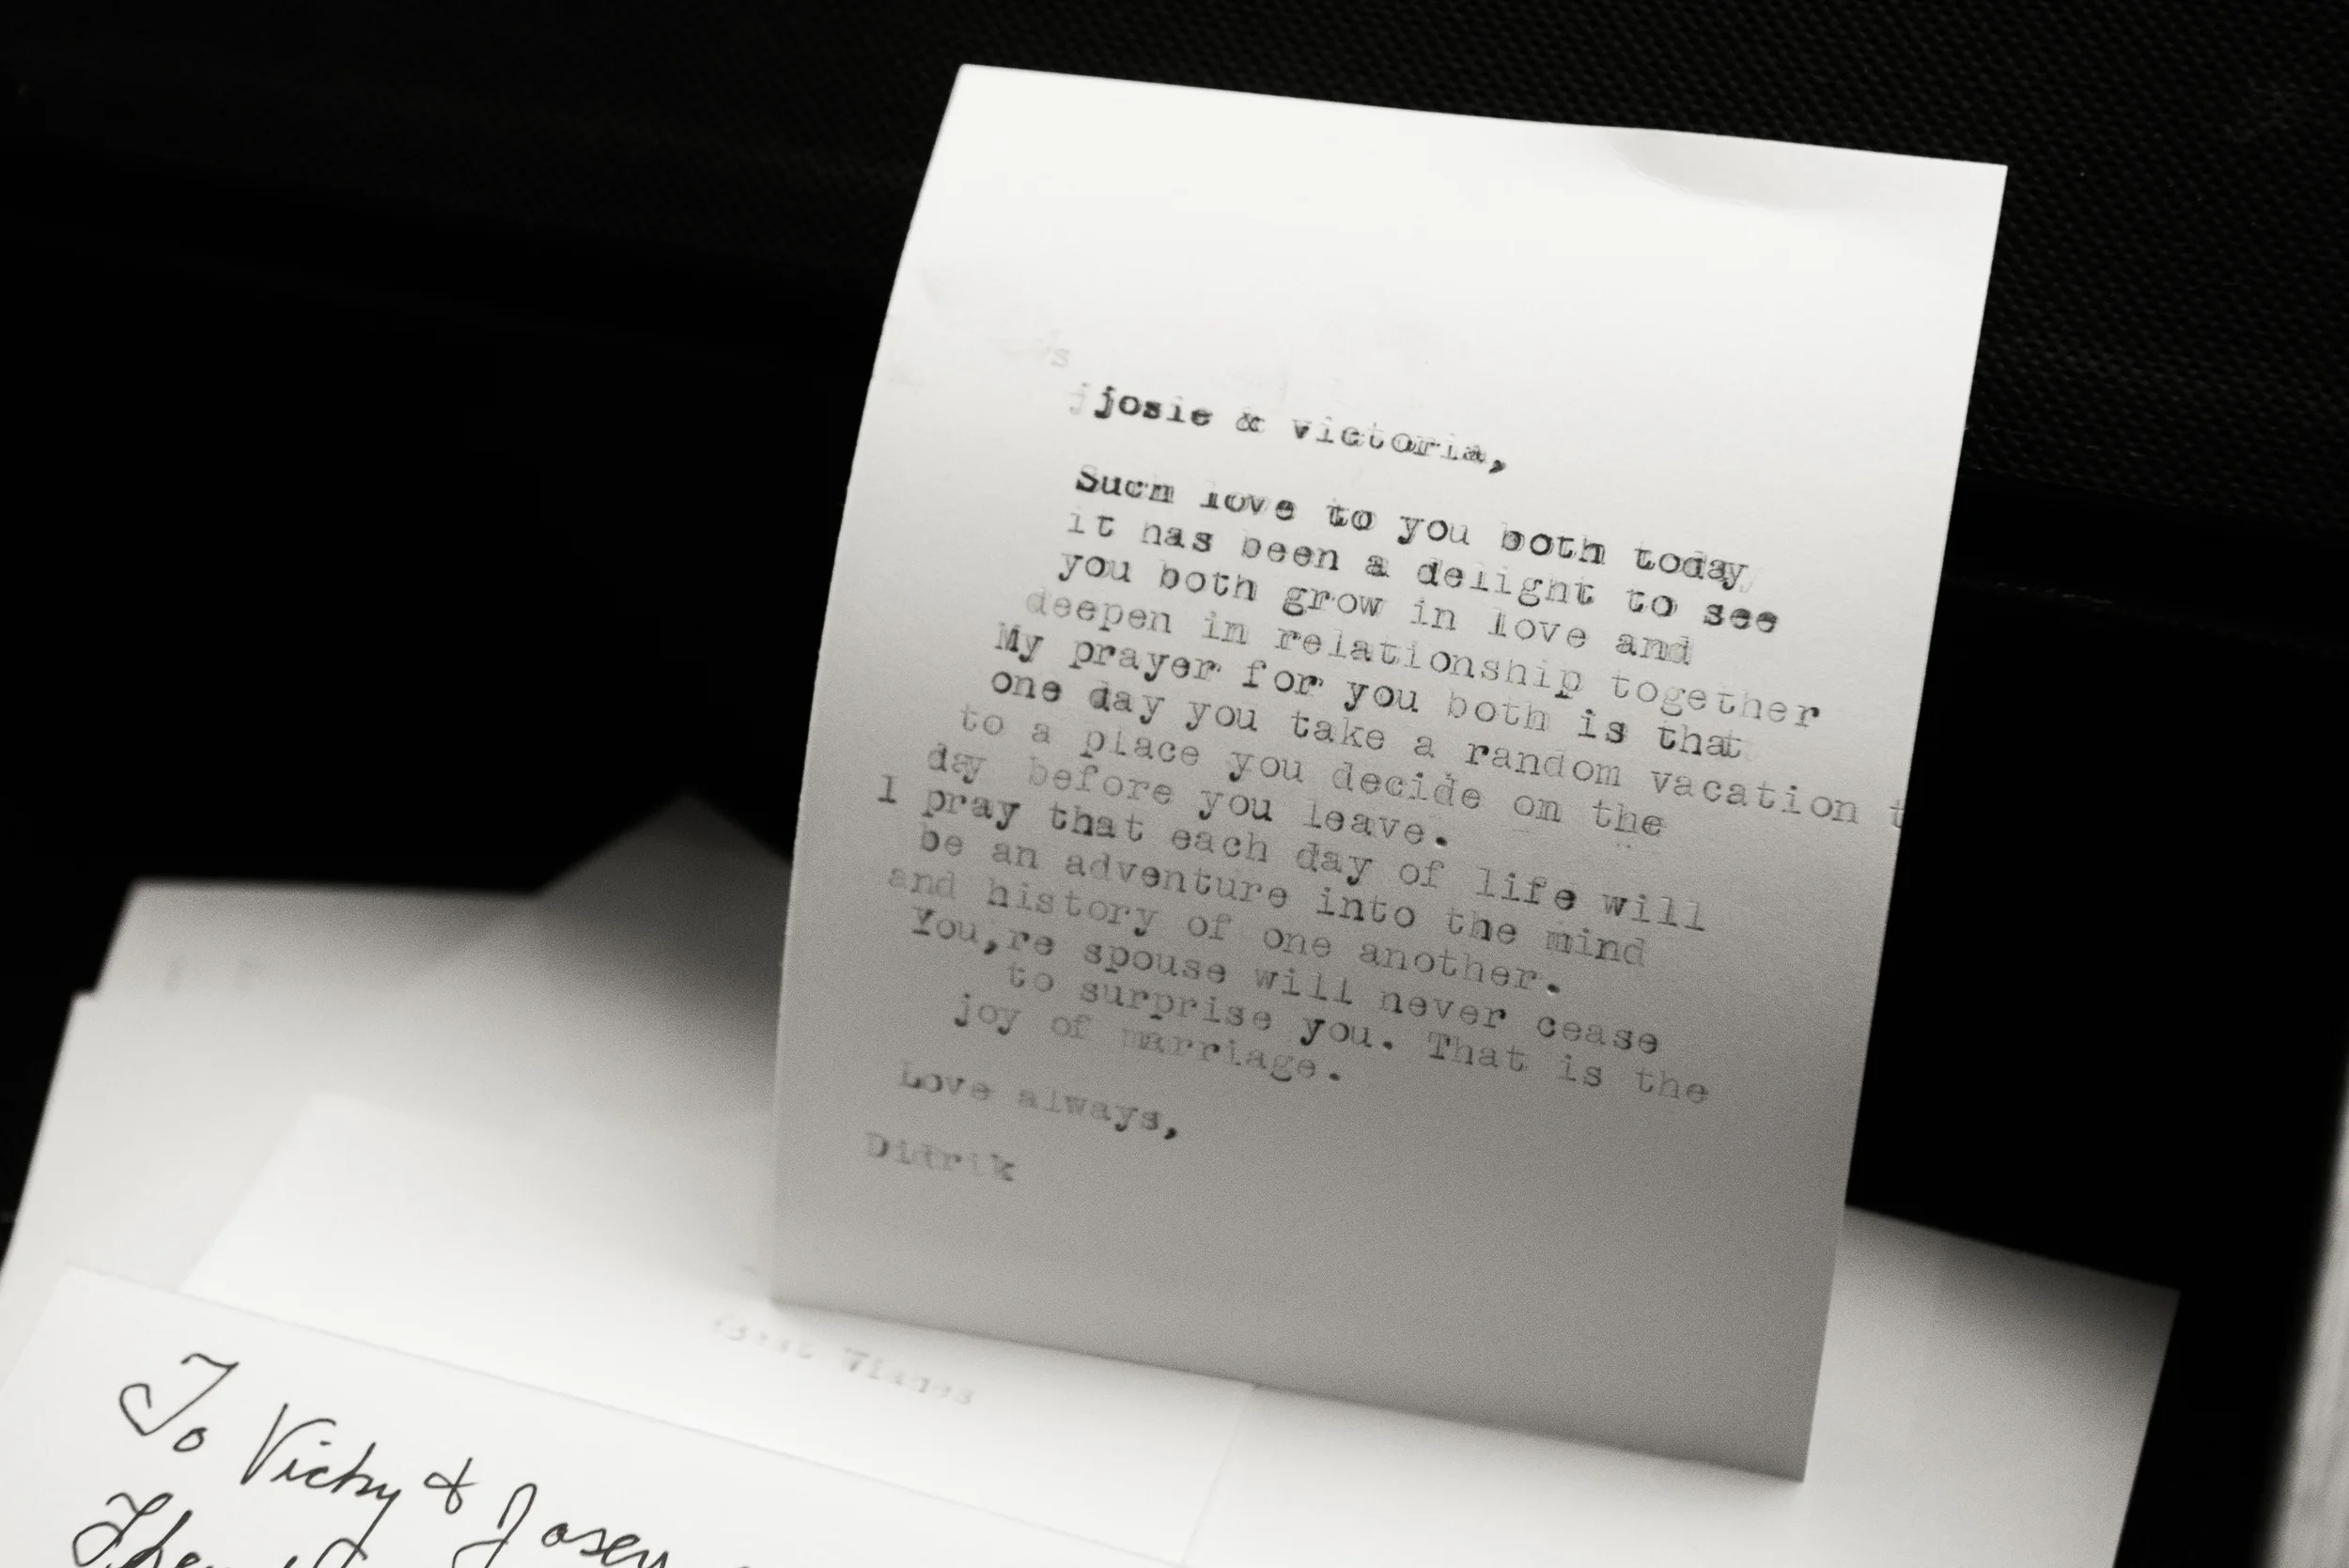 josie & victoria,
Such love to you both today
it has been a delight to see
you both grow in love and
deepen in relationship together
My prayer for you both is that
one day you take a random vacation t
to a place you decide on the
day before you leave.
I pray that each day of life will
be an adventure into the mind
and history of one another.
You,re spouse will never cease
to surprise you. That is the
joy of marriage.
Love always,
Didrik
To Vicky & Josey